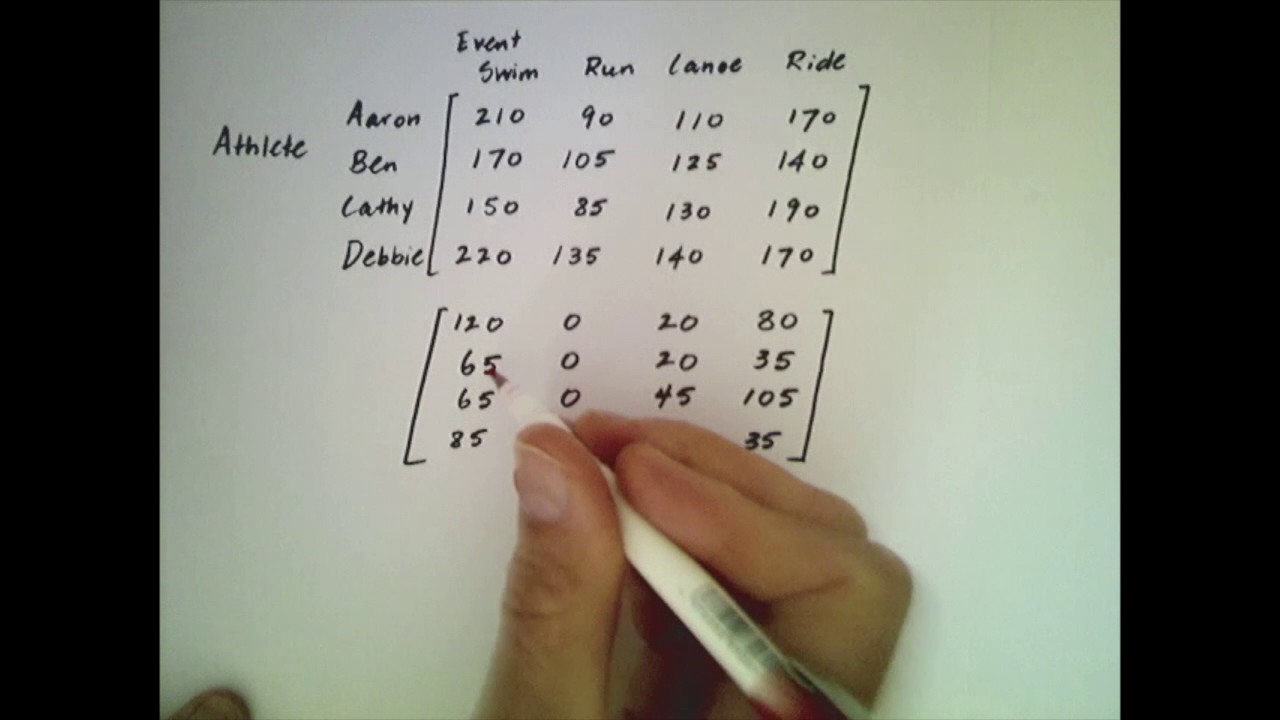 Event
Swim Run Canoe Ride
Athlete
Aaron 210 90 110 170
Ben 170 105 125 140
Cathy 150 85 130 190
Debbie 220 135 140 170
120 0 20 80
65 0 20 35
65 0 45 105
85 35